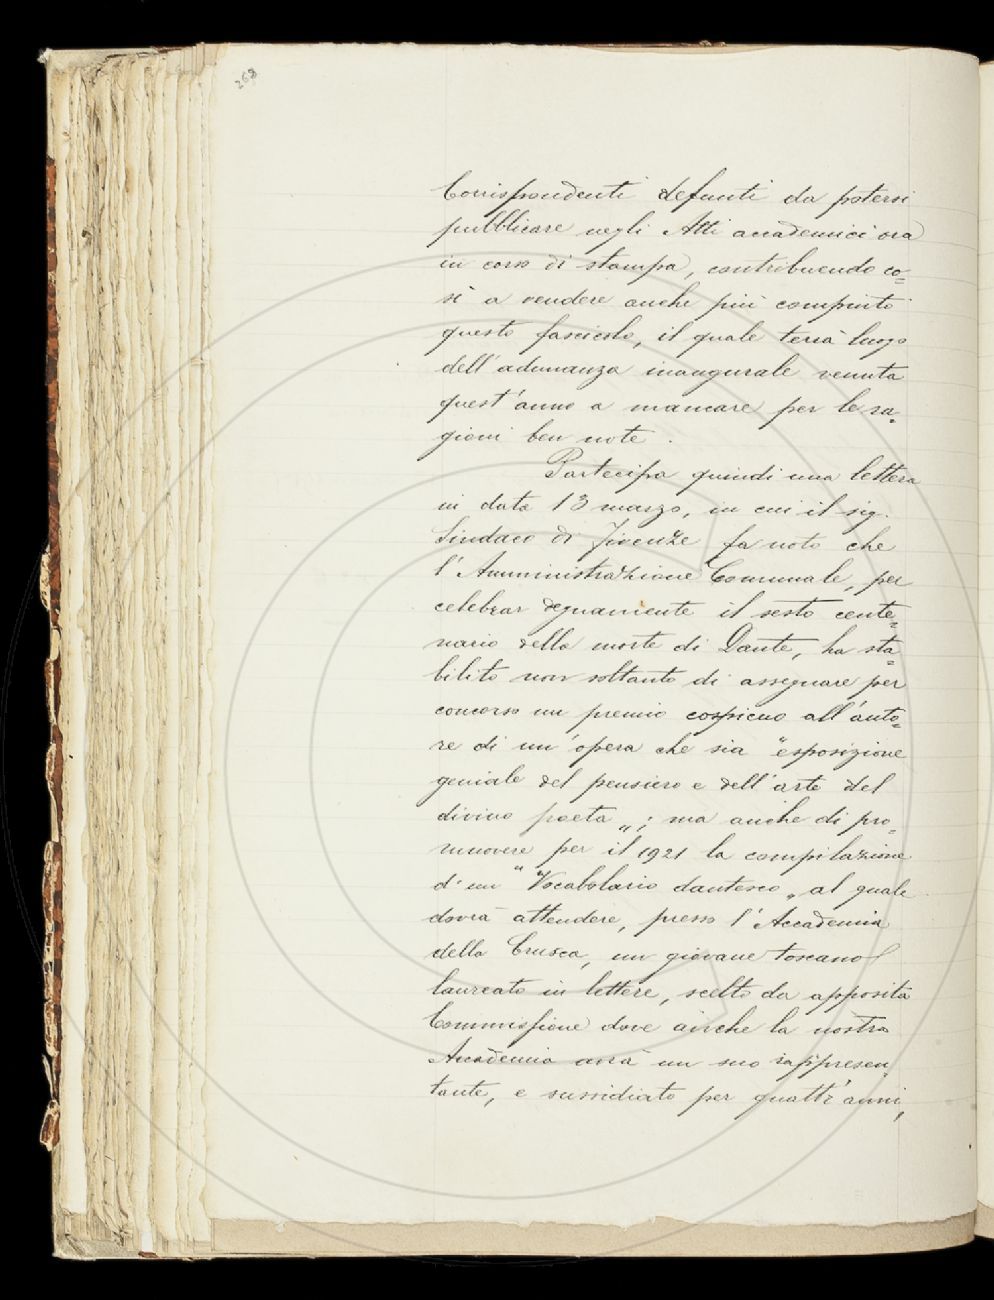 268
Corrispondenti defunti da potersi
pubblicare negli Atti accademici ora
in corso di stampa, contribuendo co=
sì a rendere anche più compiuto
questo fascicolo, il quale terrà luogo
dell'adunanza inaugurale venuta
quest'anno a mancare per le ra=
gioni ben note.
Partecipa quindi una lettera
in data 13 marzo, in cui il sig.
Sindaco di Firenze fa noto che
l'Amministrazione Comunale, per
celebrar degnamente il sesto cente=
nario della morte di Dante, ha sta=
bilito non soltanto di assegnare per
concorso un premio cospicuo all'auto=
re di un'opera che sia "esposizione
geniale del pensiero e dell'arte del
divino poeta„; ma anche di pro=
muovere per il 1921 la compilazione
d'un "Vocabolario dantesco„ al quale
dovrà attendere, presso l'Accademia
della Crusca, un giovane toscano
laureato in lettere, scelto da apposita
Commissione dove anche la nostra
Accademia avrà un suo rappresen=
tante, e sussidiato per quattr'anni,